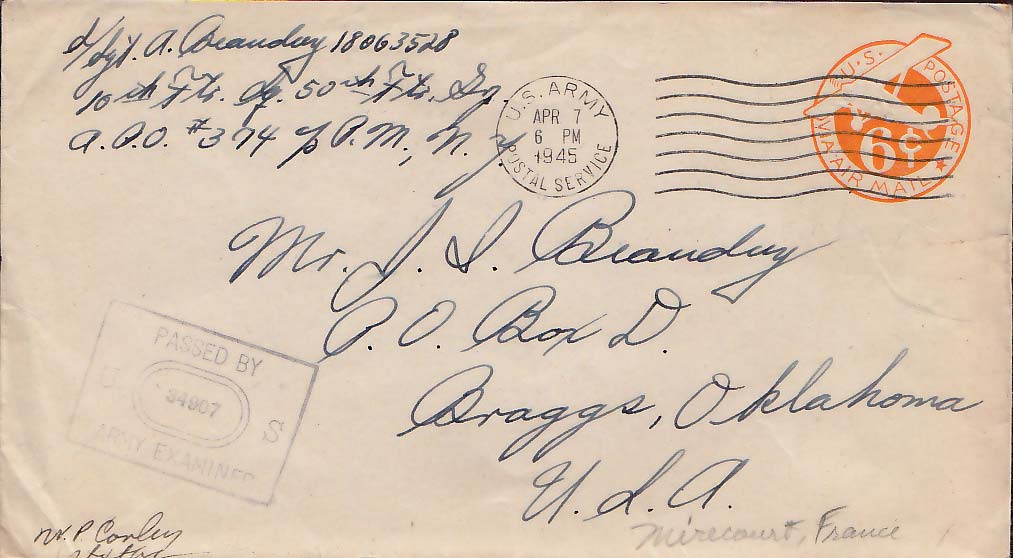 S/Sgt. A. Beanduy 18063528
10th Ftr. Sq. 50th Ftr. Gp
A.P.O. #374 % P.M., N.Y.
U.S. ARMY
APR 7
6 PM
1945
POSTAL SERVICE
U.S. POSTAGE
6¢
VIA AIR MAIL
Mr. J. J. Beanduy
P. O. Box D.
Braggs, Oklahoma
U.S.A.
PASSED BY
U 34907 S
ARMY EXAMINER
Conley
Mirecourt, France